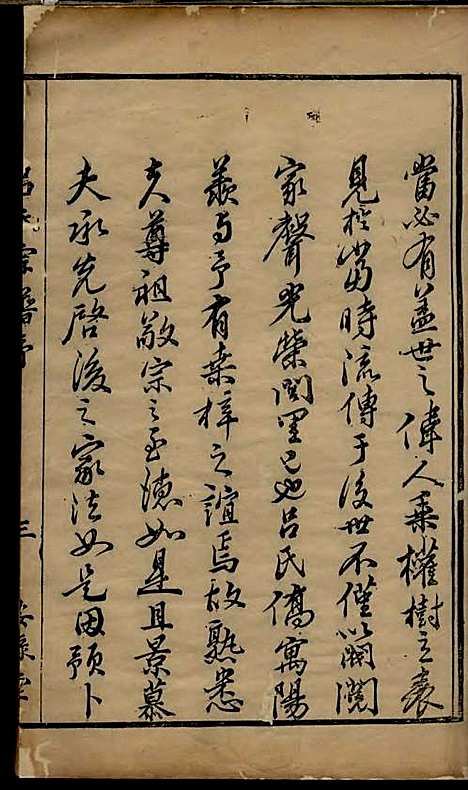 當必有蓋世之偉人乘權樹立表
見於當時流傳于後世不僅以閥閱
家聲光榮閭里已也呂氏僑寓陽
羨與予有桑梓之誼焉故熟悉
其尊祖敬宗之至德如是且景慕
夫承先啓後之家法如是因預卜
呂氏宗譜序
三